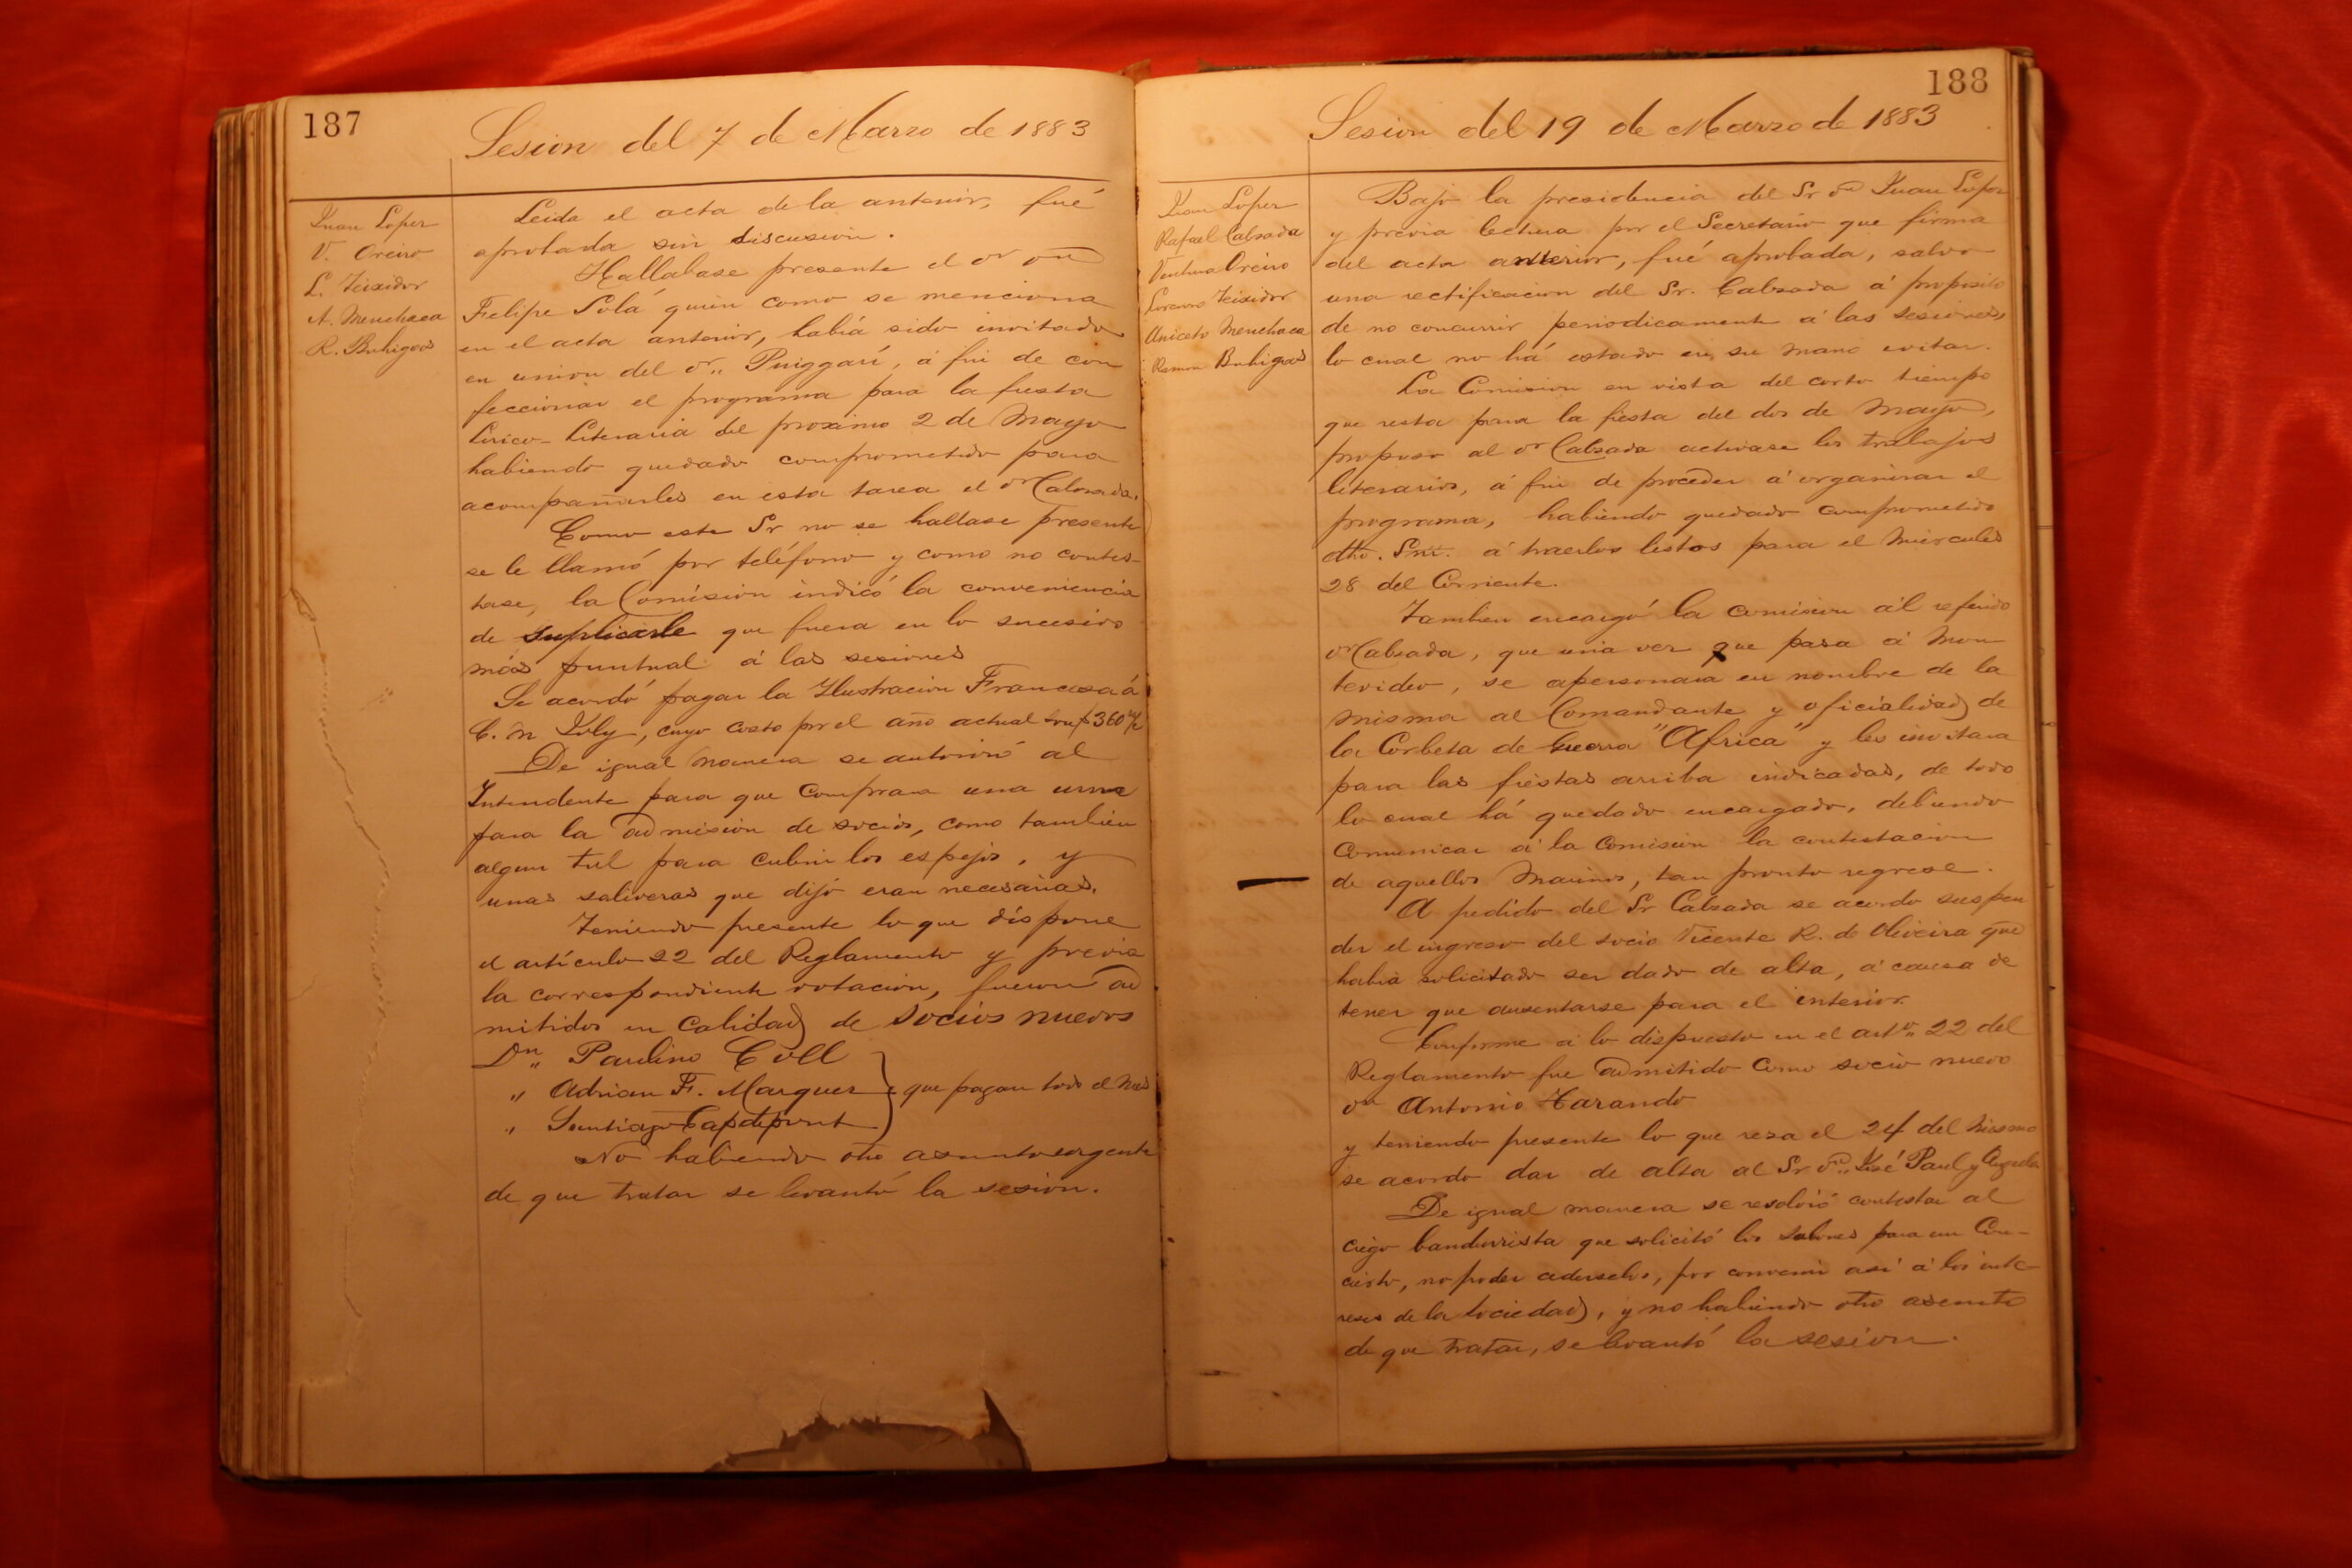 187
Sesion del 7 de Marzo de 1883
Juan Lopez
V. Oreiro
L. Teixidor
A. Menchaca
R. Buhigas
Leida el acta de la anterior, fué
aprobada sin discusion.
Hallabase presente el Dr Dn
Felipe Solá quien como se menciona
en el acta anterior, habiá sido invitado
en union del Dr. Puiggari, á fin de con
feccionar el programa para la fiesta
Lirico-Literaria del proximo 2 de Mayo
habiendo quedado comprometido para
acompañarles en esta tarea el Dr Calzada.
Como este Sr no se hallase presente
se le llamó por teléfono y como no contes-
tase, la Comision indicó la conveniencia
de suplicarle que fuera en lo sucesivo
más puntual á las sesiones
Se acordó pagar la Ilustracion Francesa á
C. M Joly, cuyo costo por el año actual son $ 360 m/c
De igual manera se autorizó al
Intendente para que comprara una urna
para la admision de socios, como tambien
algun tul para cubrir los espejos, y
unas saliveras que dijó eran necesarias.
Teniendo presente lo que dispone
el artículo 22 del Reglamento y previa
la correspondiente votacion, fueron ad
mitidos en calidad de socios nuevos
Dn" Paulino Coll
" Adrian F. Marquez
" Santiago Capdepont
que pagan todo el mes
No habiendo otro asunto urgente
de que tratar se levantó la sesion.
188
Sesion del 19 de Marzo de 1883
Juan Lopez
Rafael Calzada
Ventura Oreiro
Lorenzo Teixidor
Aniceto Menchaca
Ramon Buhigas
Bajo la presidencia del Sr Dn Juan Lopez
y previa lectura por el Secretario que firma
del acta anterior, fué aprobada, salvo
una rectificacion del Sr. Calzada á proposito
de no concurrir periodicamente á las sesiones
lo cual no há estado en su mano evitar.
La Comision en vista del corto tiempo
que resta para la fiesta del dos de Mayo,
propuso al Dr Calzada activase los trabajos
literarios, á fin de proceder á organizar el
programa, habiendo quedado comprometido
dho. Snr. á traerlos listos para el Miercoles
28 del Corriente.
Tambien encargó la comision al referido
Dr Calzada, que una vez que pasa á Mon
tevideo, se apersonara en nombre de la
misma al Comandante y oficialidad de
la Corbeta de Guerra "Africa" y les invitara
para las fiestas arriba indicadas, de todo
lo cual há quedado encargado, debiendo
comunicar á la Comision la contestacion
de aquellos Marinos, tan pronto regrese.
A pedido del Sr Calzada se acordo suspen
der el ingreso del socio Vicente R. de Oliveira que
habia solicitado ser dado de alta, á causa de
tener que ausentarse para el interior.
Conforme á lo dispuesto en el arto. 22 del
Reglamento fue admitido como socio nuevo
Dn Antonio Tarando
y teniendo presente lo que reza el 24 del mismo
se acordo dar de alta al Sr Dn. José Paul y Angulo
De igual manera se resolvió contestar al
ciego bandurrista que solicitó los salones para un Con-
cierto, no poder cederselos, por convenir asi á los inte-
reses de la Sociedad, y no habiendo otro asunto
de que tratar, se levantó la sesion.